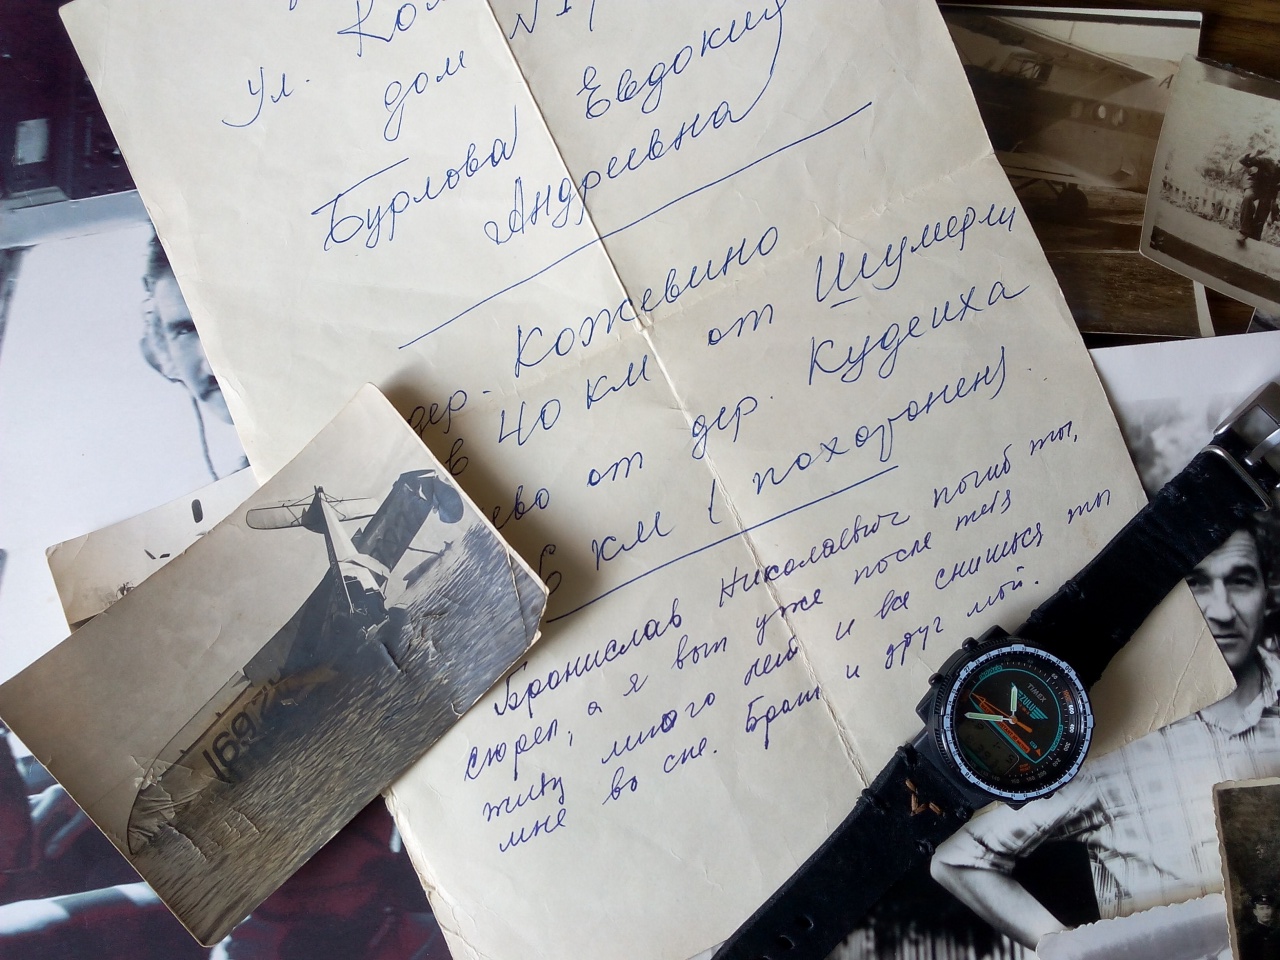 Ул. Ком
дом №1
Бурлова Евдокия
Андреевна
дер. Кожевино
в 40 км от Шумерли
ево от дер. Кудеиха
6 км (похоронен).
Бронислав Николаевич погиб ты,
сгорел, а я вот уже после тебя
живу много лет и все снишься ты
мне во сне. Брат и друг мой.
TIMEX
ZULU
A